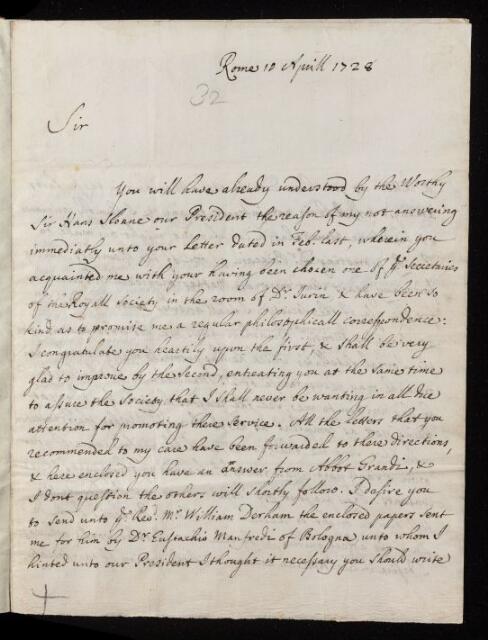 Rome 10 Aprill 1728
32
Sir
You will have already understood by the Worthy
Sir Hans Sloane our President the reason of my not answering
immediatly unto your Letter dated in Feb. last, wherein you
acquainted me with your having been chosen one of ye. Secretaries
of the Royall Society in the room of Dr. Jurin & have been so
kind as to promise me a regular philosophicall correspondence:
I congratulate you heartily upon the first, & shall be very
glad to improve by the Second, entreating you at the same time
to assure the Society that I shall never be wanting in all due
attention for promoting there Service. All the letters that you
recommended to my care have been forwarded to there directions,
& here enclosed you have an answer from Abbot Grandi, &
I dont question the others will shortly follow. I desire you
to send unto ye. Revd. Mr. William Derham the enclosed papers sent
me for him by Dr. Eustachio Manfredi of Bologna unto whom I
hinted unto our President I thought it necessary you should write